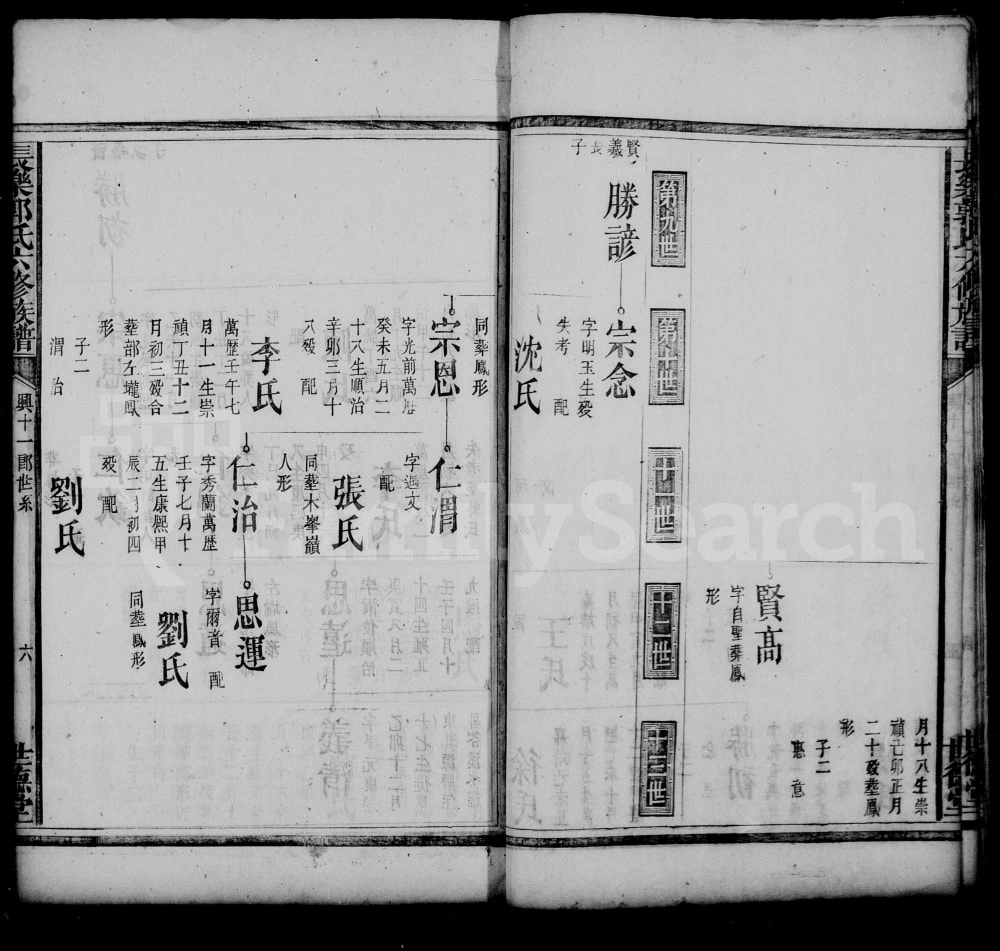 月十八生崇
禎己卯正月
二十殁塟鳳
形
子二
惠意
賢高
字自聖葬鳳
形
第十九世
第二十世
二十一世
二十二世
二十三世
賢義長子
勝諺
宗念
字明玉生殁
失考 配
沈氏
同塟鳳形
宗恩
字光前萬歷
癸未五月二
十八生順治
辛卯三月十
八殁 配
李氏
萬歷壬午七
月十一生崇
禎丁丑十二
月初三殁合
塟部左壠鳳
形
子二
渭治
仁渭
字遇文
配
張氏
同塟木峯嶺
人形
仁治
字秀蘭萬歷
壬子七月十
五生康熙甲
辰二月初四
殁 配
劉氏
思運
字爾音 配
劉氏
同塟鳳形
長樂郭氏六修族譜
興十一郎世系
六
世德堂
FamilySearch